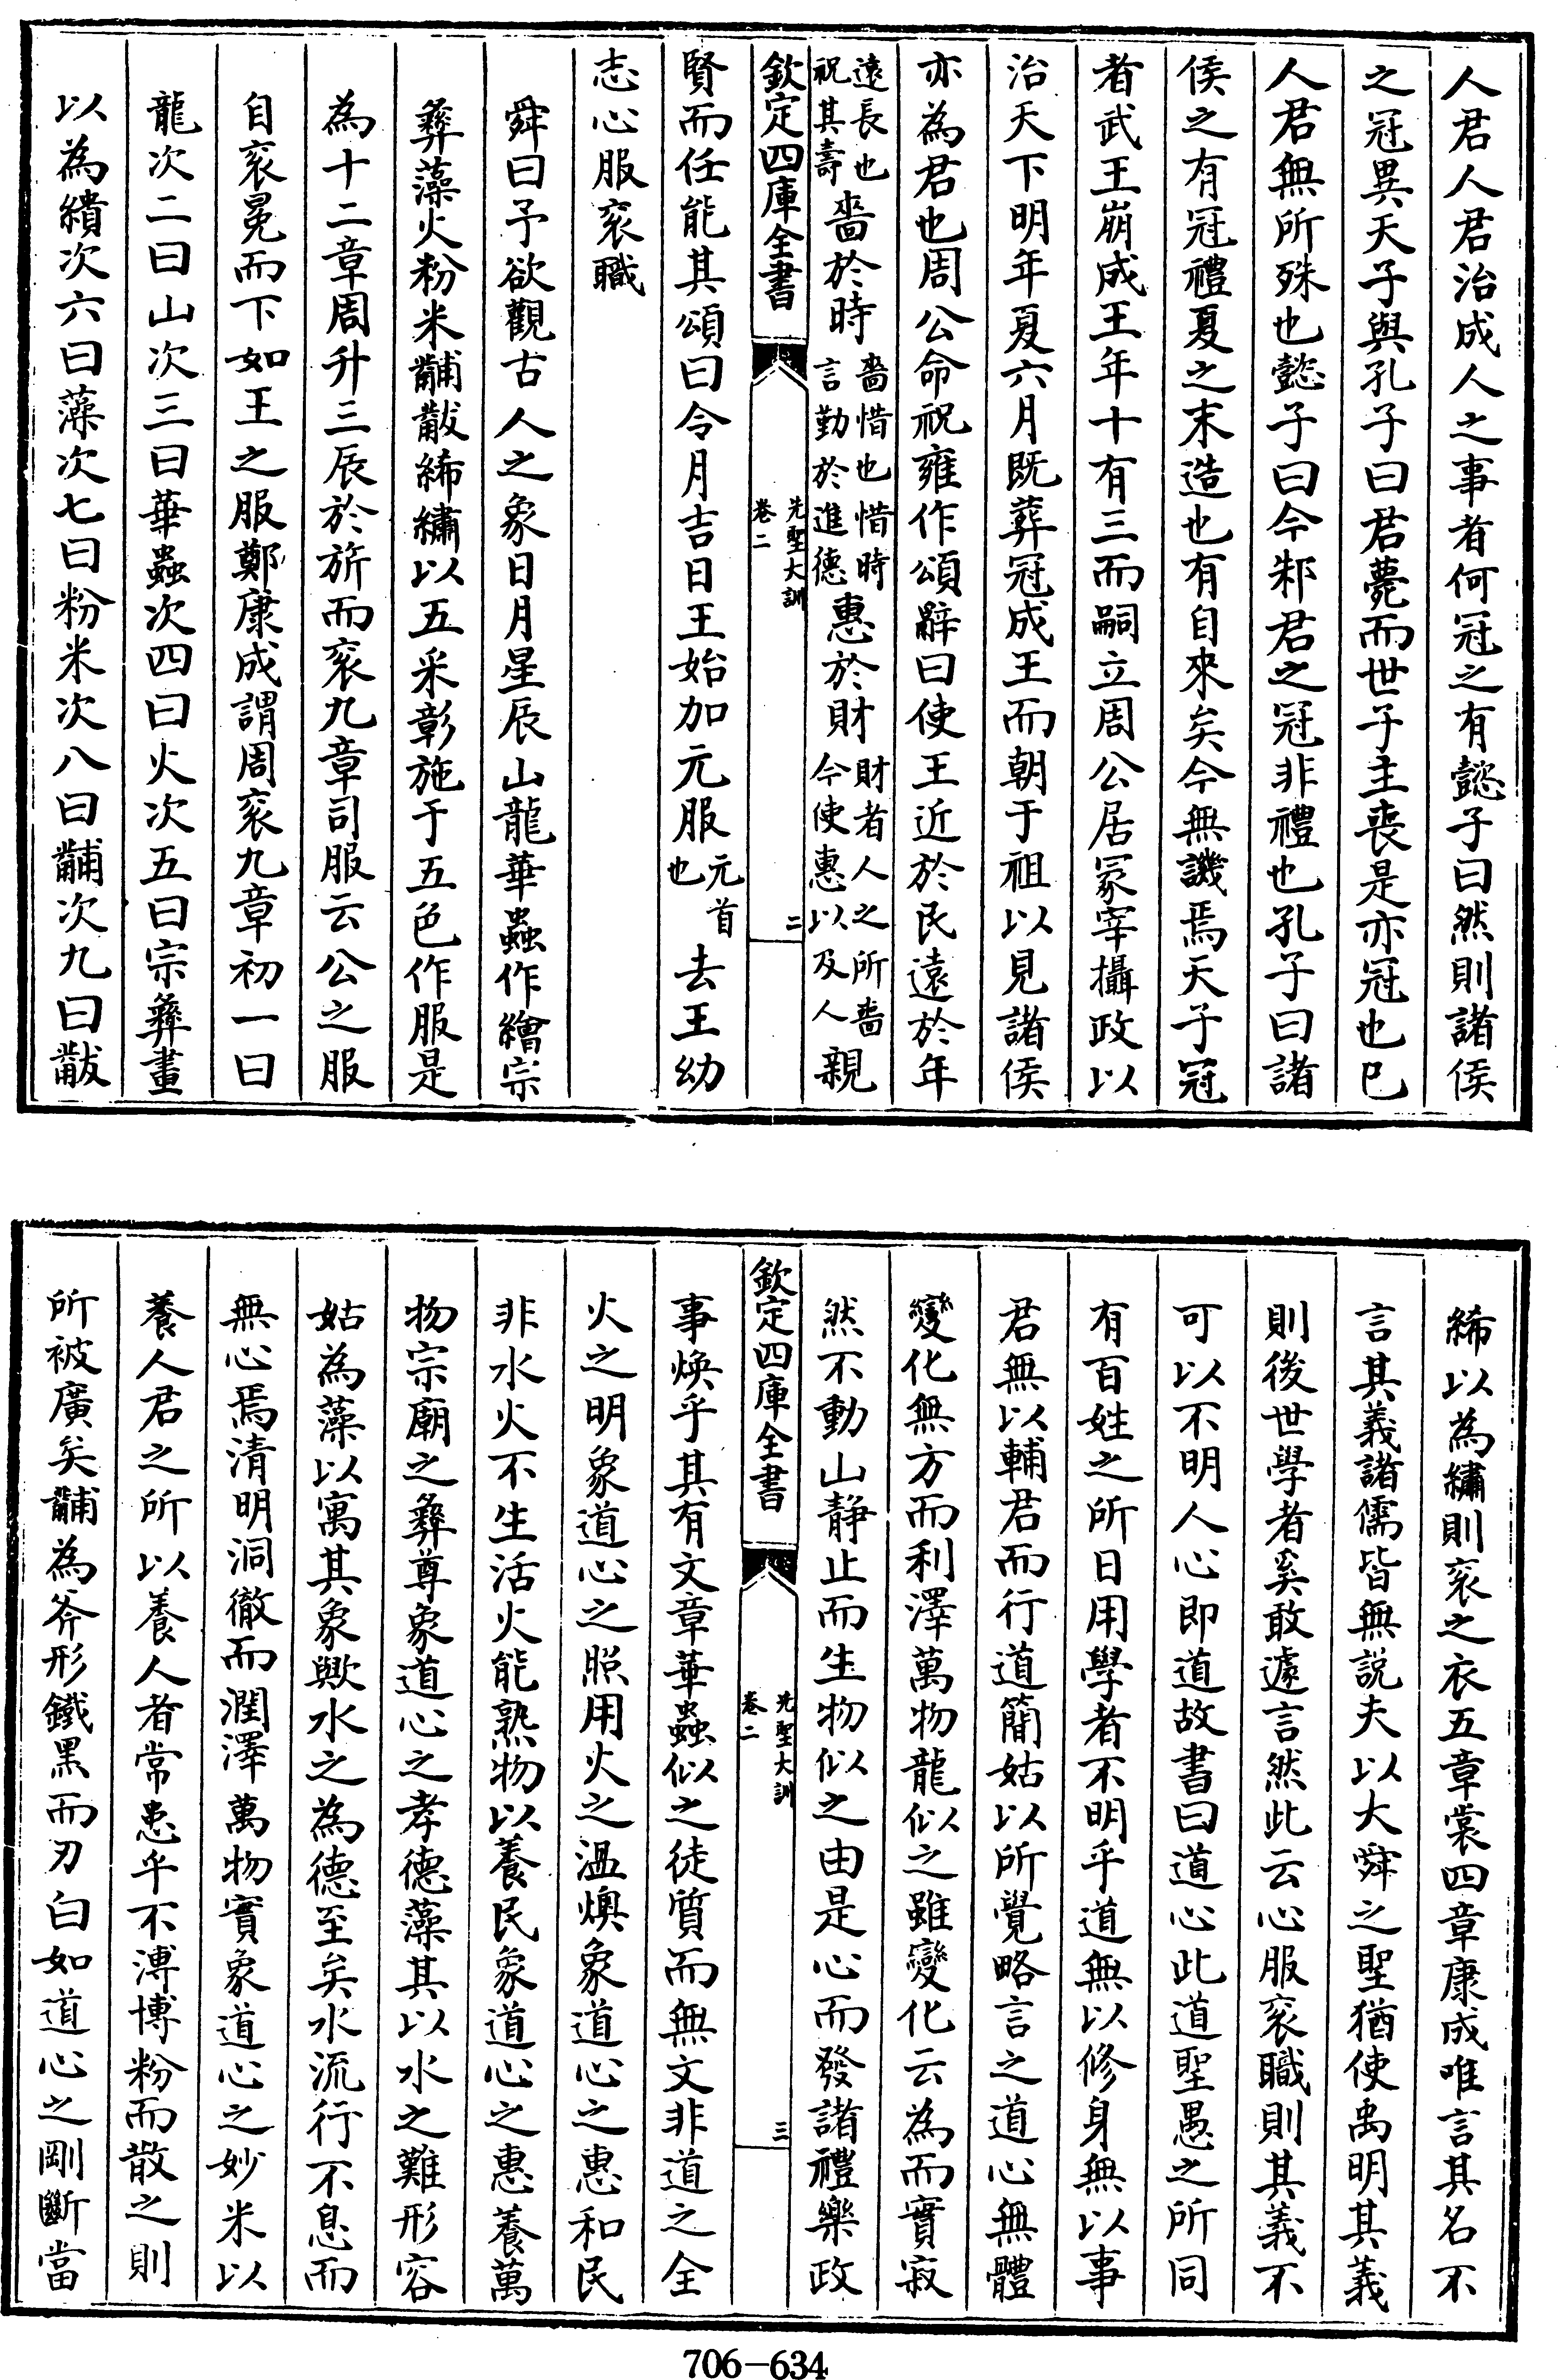 人君人君治成人之事者何冠之有懿子曰然則諸侯
之冠異天子與孔子曰君薨而世子主喪是亦冠也已
人君無所殊也懿子曰今邾君之冠非禮也孔子曰諸
侯之有冠禮夏之末造也有自來矣今無譏焉天子冠
者武王崩成王年十有三而嗣立周公居冢宰攝政以
治天下明年夏六月既葬冠成王而朝于祖以見諸侯
亦為君也周公命祝雍作頌辭曰使王近於民遠於年
遠長也祝其壽嗇於時嗇惜也惜時言勤於進德惠於財財者人之所嗇今使惠以及人親
欽定四庫全書 先聖大訓 卷二 二
賢而任能其頌曰令月吉日王始加元服元首也去王幼
志心服袞職
舜曰予欲觀古人之象日月星辰山龍華蟲作繪宗
彝藻火粉米黼黻絺繡以五采彰施于五色作服是
為十二章周升三辰於旂而袞九章司服云公之服
自袞冕而下如王之服鄭康成謂周袞九章初一曰
龍次二曰山次三曰華蟲次四曰火次五曰宗彝畫
以為繢次六曰藻次七曰粉米次八曰黼次九曰黻
絺以為繡則袞之衣五章裳四章康成唯言其名不
言其義諸儒皆無說夫以大舜之聖猶使禹明其義
則後世學者奚敢遽言然此云心服袞職則其義不
可以不明人心即道故書曰道心此道聖愚之所同
有百姓之所日用學者不明乎道無以修身無以事
君無以輔君而行道簡姑以所覺略言之道心無體
變化無方而利澤萬物龍似之雖變化云為而實寂
然不動山靜止而生物似之由是心而發諸禮樂政
欽定四庫全書 先聖大訓 卷二 三
事煥乎其有文章華蟲似之徒質而無文非道之全
火之明象道心之照用火之溫燠象道心之惠和民
非水火不生活火能熟物以養民象道心之惠養萬
物宗廟之彝尊象道心之孝德藻其以水之難形容
姑為藻以寓其象歟水之為德至矣水流行不息而
無心焉清明洞徹而潤澤萬物實象道心之妙米以
養人君之所以養人者常患乎不溥博粉而散之則
所被廣矣黼為斧形鐵黑而刃白如道心之剛斷當
706-634